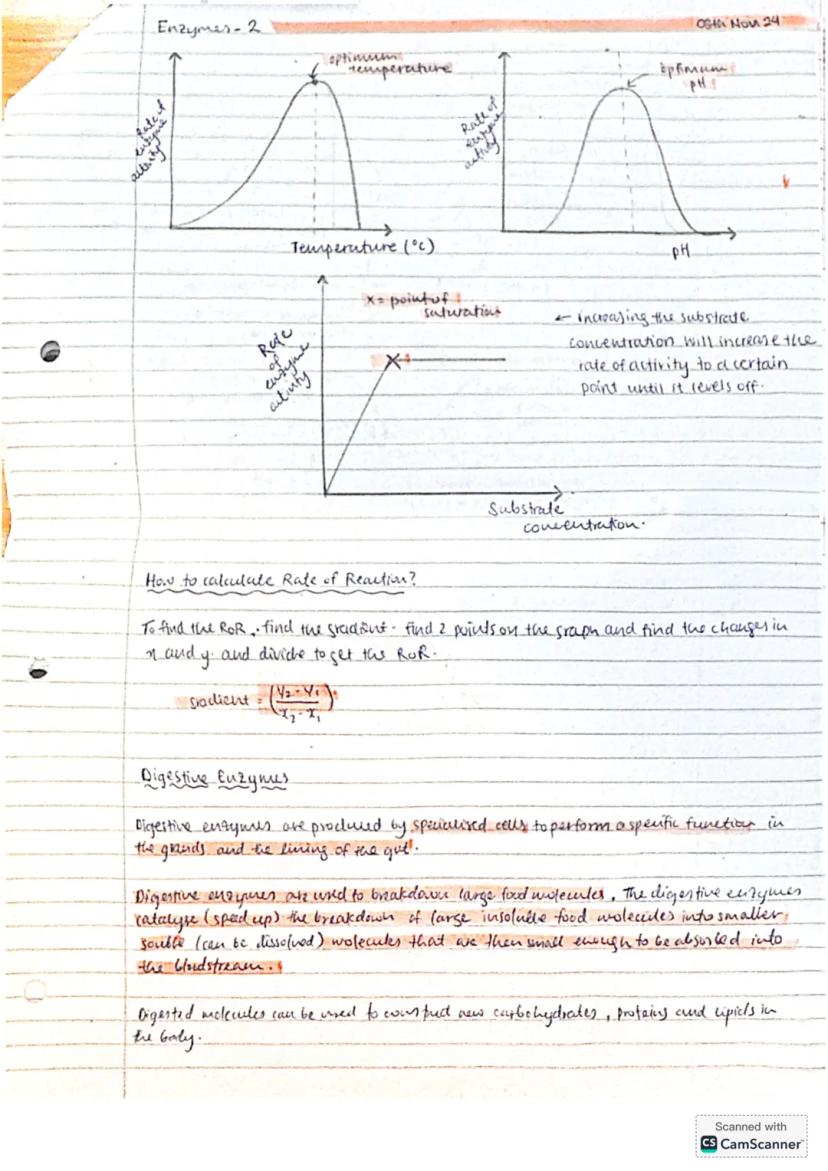 Enzymes - 2
05th Nov 24
optimum
temperature
Rate of
enzyme
activity
Temperature (°C)
optimum
pH
Rate of
enzyme
activity
pH
x = point of
saturation
Rate
of
enzyme
activity
X
Substrate
concentration.
← increasing the substrate
concentration will increase the
rate of activity to a certain
point until it levels off.
How to calculate Rate of Reaction?
To find the RoR, find the gradient. Find 2 points on the graph and find the changes in
x and y. and divide to get the RoR.
gradient = (y₂ - y₁ / x₂ - x₁)
Digestive Enzymes
Digestive enzymes are produced by specialised cells to perform a specific function in
the glands and the lining of the gut.
Digestive enzymes are used to breakdown large food molecules. The digestive enzymes
catalyse (speed up) the breakdown of large insoluble food molecules into smaller
soluble (can be dissolved) molecules that are then small enough to be absorbed into
the bloodstream.
Digested molecules can be used to construct new carbohydrates, proteins and lipids in
the body.
Scanned with
CS CamScanner